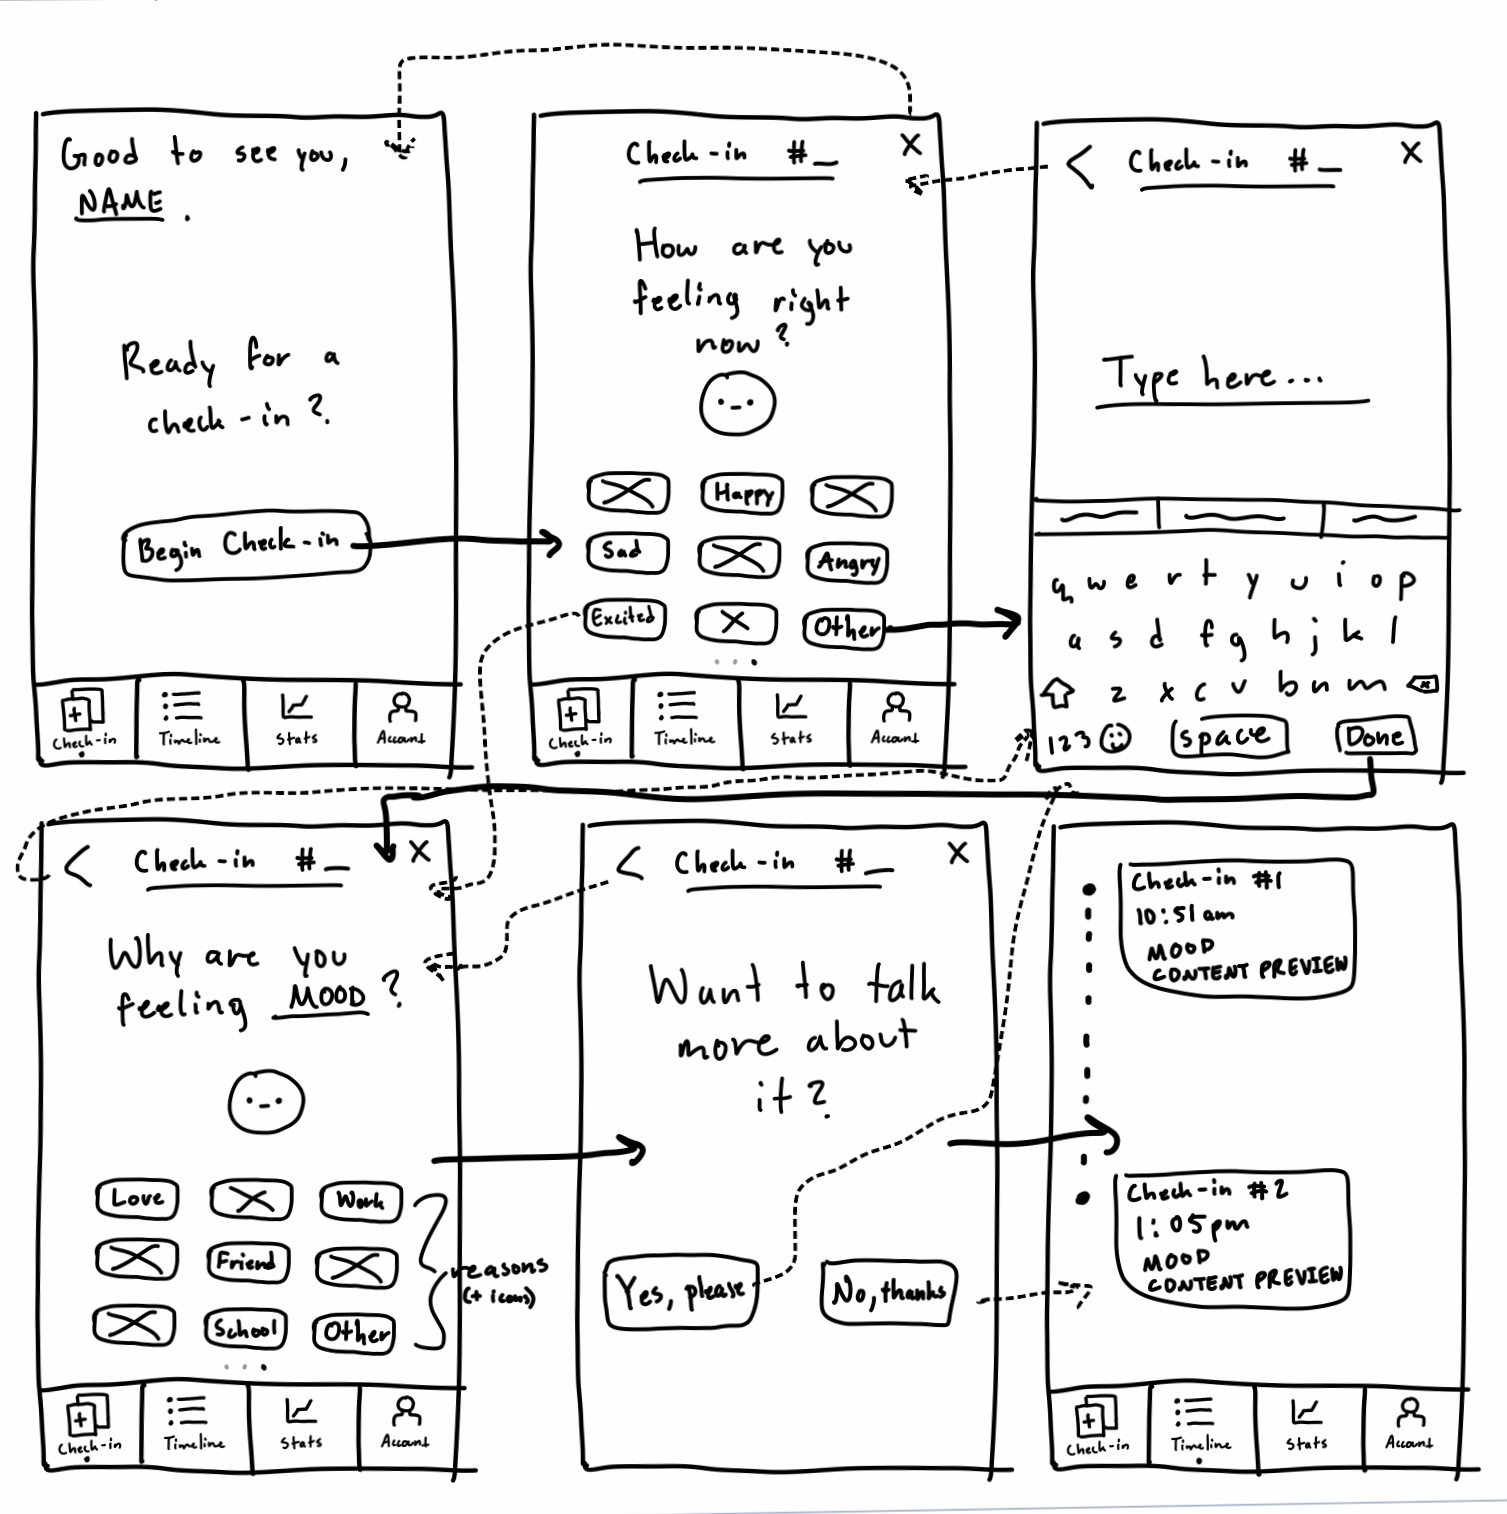 Good to see you,
NAME.
Ready for a
check-in?
Begin Check-in
Check-in
Timeline
Stats
Account
Check-in #_
X
How are you
feeling right
now?
Happy
Sad
Angry
Excited
Other
Check-in
Timeline
Stats
Account
< Check-in #_
X
Type here...
q w e r t y u i o p
a s d f g h j k l
z x c v b n m
123
space
Done
< Check-in #_
X
Why are you
feeling MOOD?
Love
Work
Friend
School
Other
reasons
(+ icons)
Check-in
Timeline
Stats
Account
< Check-in #_
X
Want to talk
more about
it?
Yes, please
No, thanks
Check-in #1
10:51am
MOOD
CONTENT PREVIEW
Check-in #2
1:05pm
MOOD
CONTENT PREVIEW
Check-in
Timeline
Stats
Account